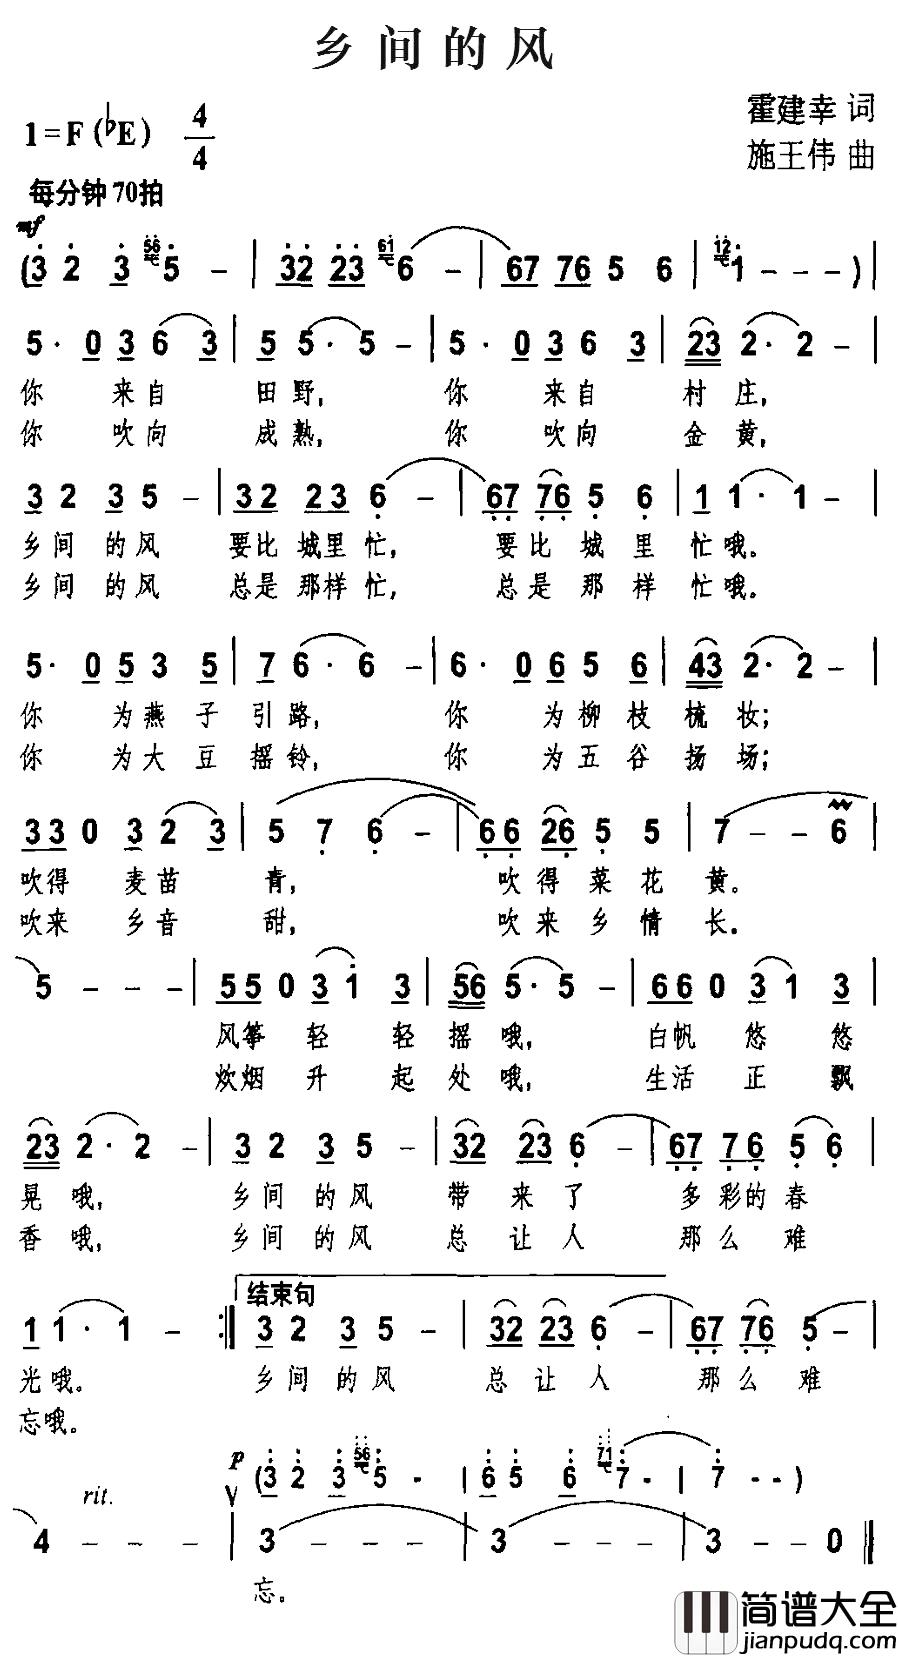 乡间的风
1=F(♭E) 4/4
霍建幸 词
施王伟 曲
每分钟70拍
mf
(3 2 3 56 5 – | 32 23 61 6 – | 67 76 5 6 | 12 1 – – – ) |
5· 0 3 6 3 | 5 5· 5 – | 5· 0 3 6 3 | 23 2· 2 – |
你 来自 田野， 你 来自 村庄，
你 吹向 成熟， 你 吹向 金黄，
3 2 3 5 – | 32 23 6 – | 67 76 5 6 | 1 1· 1 – |
乡间 的风 要比 城里忙， 要比 城里 忙哦。
乡间 的风 总是 那样忙， 总是 那样 忙哦。
5· 0 5 3 5 | 7 6· 6 – | 6· 0 6 5 6 | 43 2· 2 – |
你 为燕子 引路， 你 为柳枝 梳妆；
你 为大豆 摇铃， 你 为五谷 扬场；
33 0 3 2 3 | 5 7 6 – | 66 26 5 5 | 7 – – 6 |
吹得 麦苗 青， 吹得 菜花 黄。
吹来 乡音 甜， 吹来 乡情 长。
5 – – – | 55 0 3 1 3 | 56 5· 5 – | 66 0 3 1 3 |
风筝 轻 轻 摇哦， 白帆 悠 悠
炊烟 升 起 处哦， 生活 正 飘
23 2· 2 – | 3 2 3 5 – | 32 23 6 – | 67 76 5 6 |
晃哦， 乡间 的风 带来了 多彩的春
香哦， 乡间 的风 总让人 那么难
结束句
1 1· 1 – :| 3 2 3 5 – | 32 23 6 – | 67 76 5 –
光哦。 乡间 的风 总让人 那么难
忘哦。
p (3 2 3 56 5 - | 6 5 6 71 7 - | 7 - - )
rit.
4 – – – | 3 – – – | 3 – – – | 3 – – 0 ‖
忘。
简谱大全
jianpudq.com